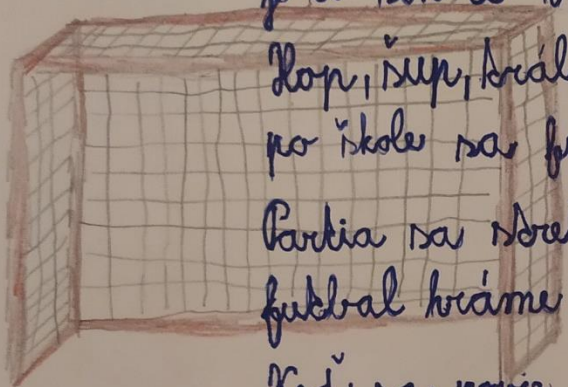 Hop, šup, král
po škole sa f
Partia sa stre
futbal hráme